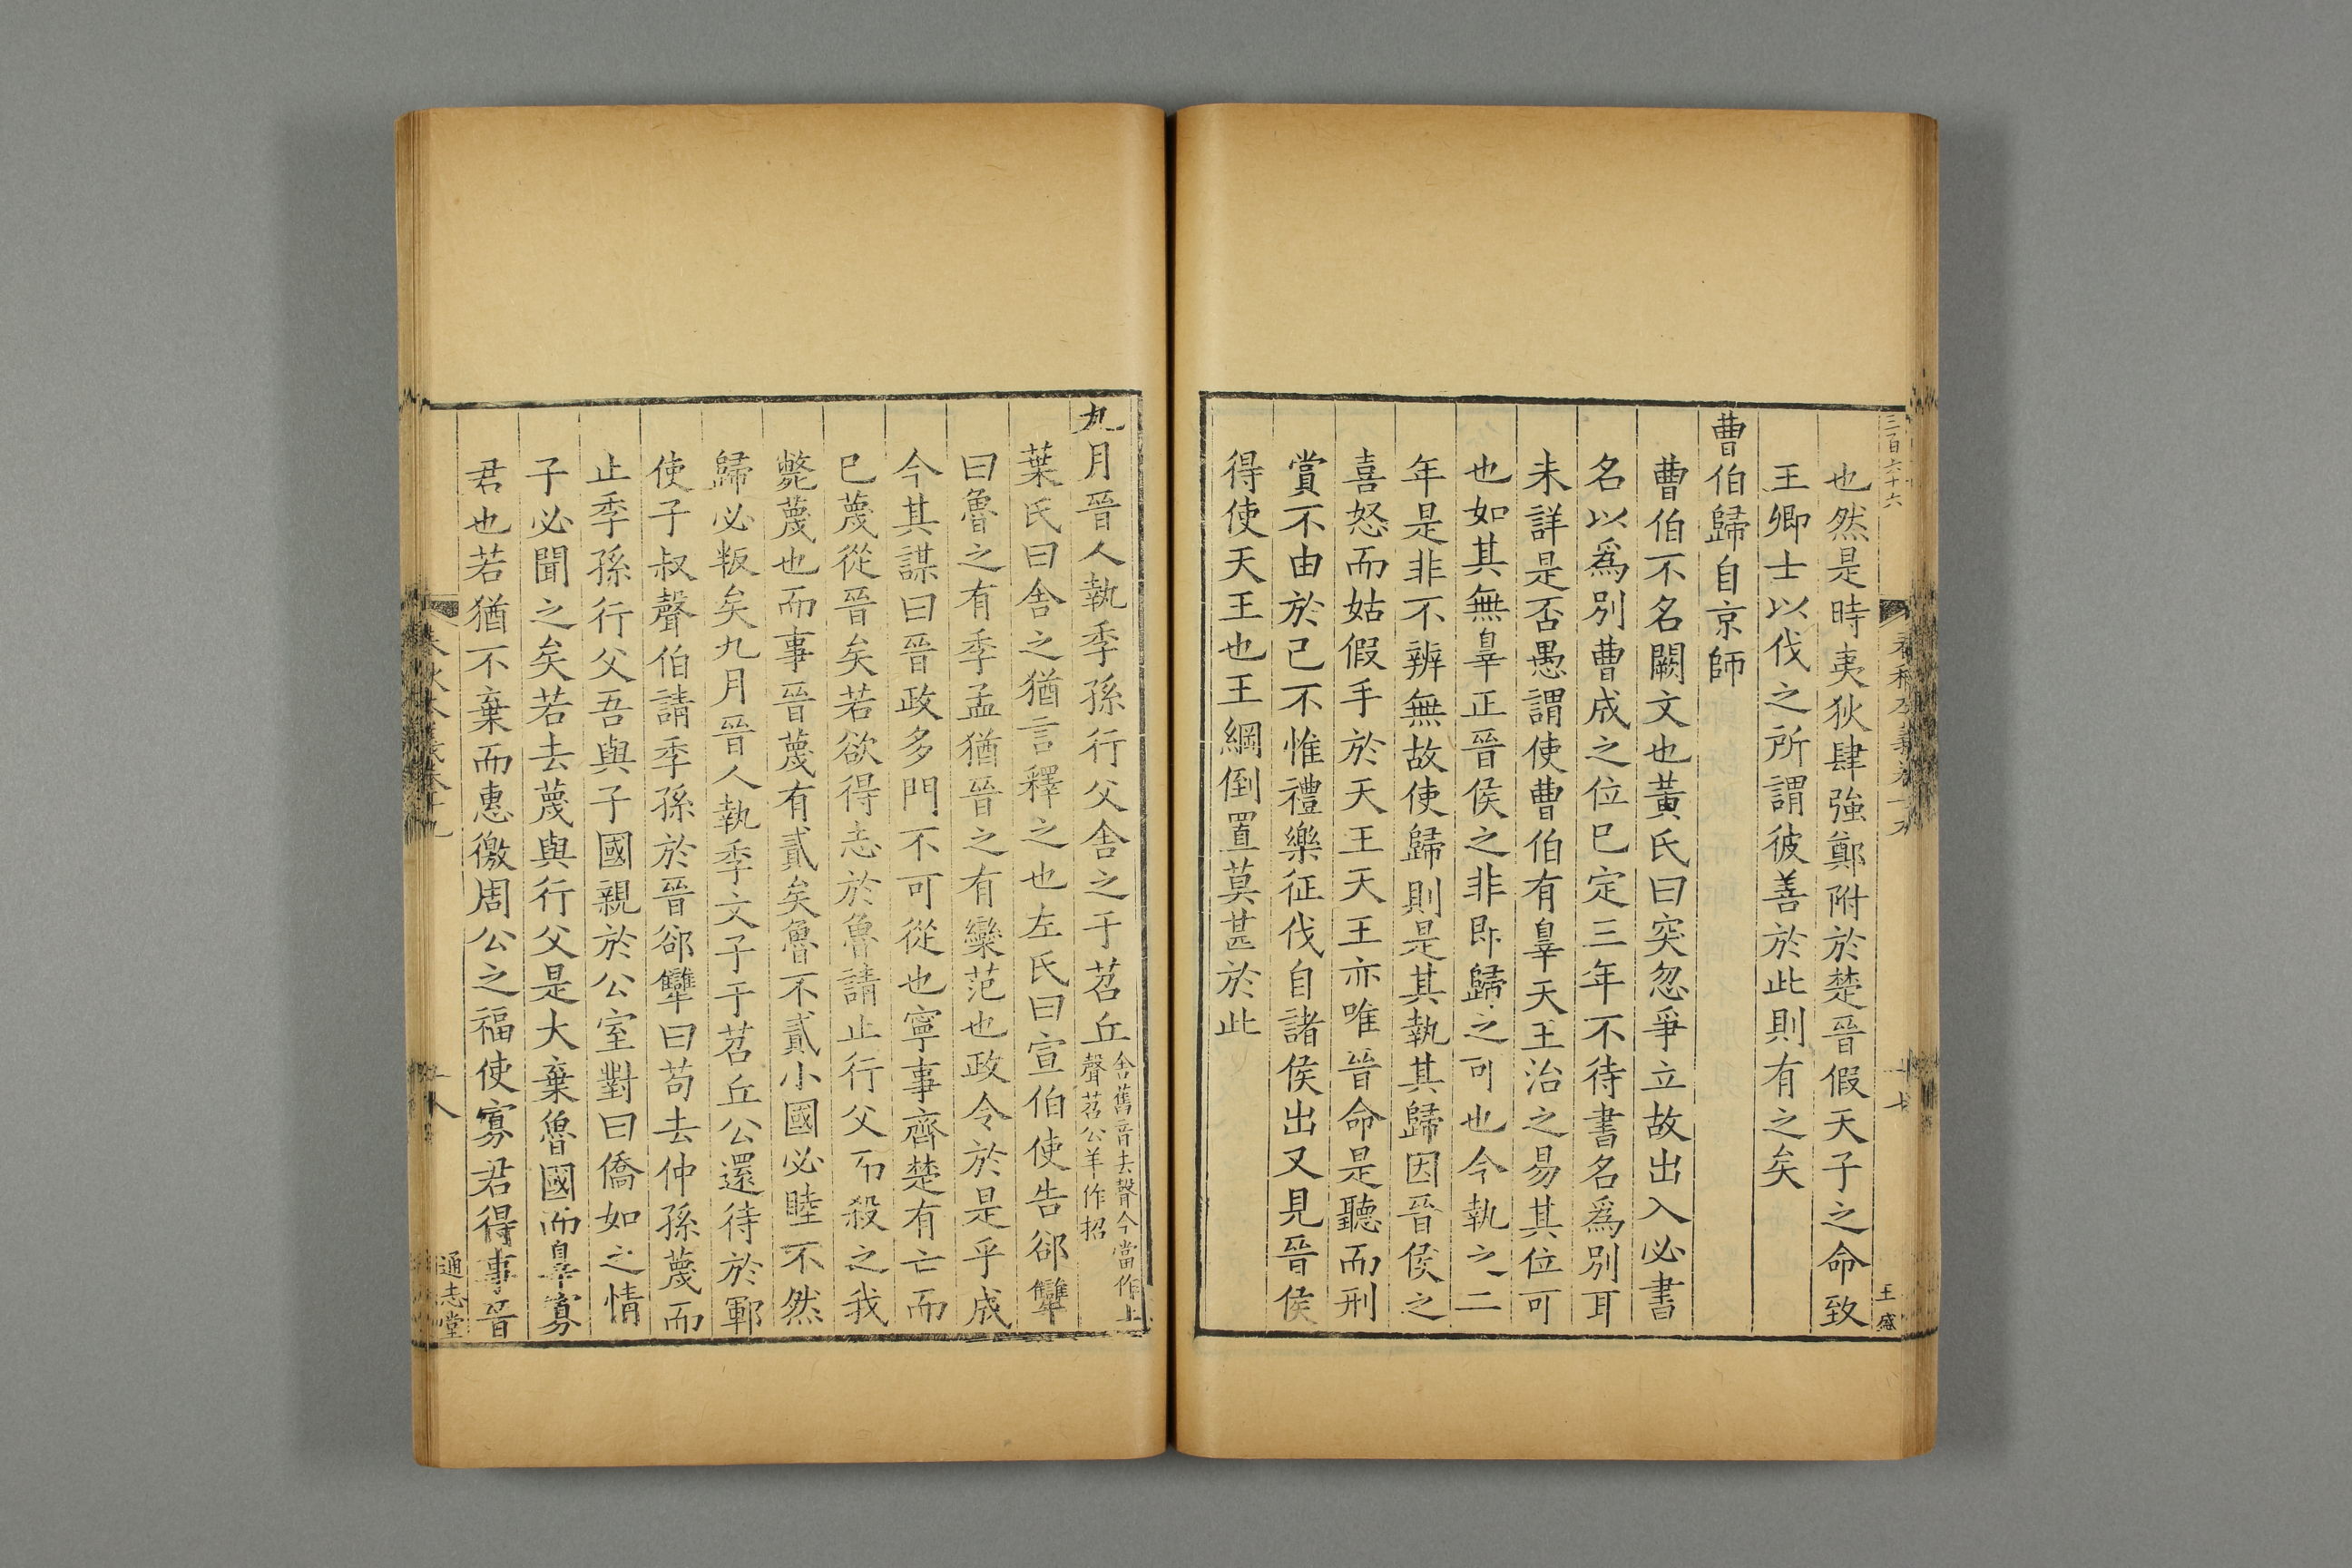 三百六十六
也然是時夷狄肆強鄭附於楚晉假天子之命致
王卿士以伐之所謂彼善於此則有之矣
曹伯歸自京師
曹伯不名闕文也黃氏曰突忽爭立故出入必書
名以爲別曹成之位已定三年不待書名爲別耳
未詳是否愚謂使曹伯有辠天王治之易其位可
也如其無辠正晉侯之非即歸之可也今執之二
年是非不辨無故使歸則是其執其歸因晉侯之
喜怒而姑假手於天王天王亦唯晉命是聽而刑
賞不由於己不惟禮樂征伐自諸侯出又見晉侯
得使天王也王綱倒置莫甚於此
九月晉人執季孫行父舍之于苕丘舍舊音去聲今當作上
聲苕公羊作招
葉氏曰舍之猶言釋之也左氏曰宣伯使告郤犫
曰魯之有季孟猶晉之有欒范也政令於是乎成
今其謀曰晉政多門不可從也寧事齊楚有亡而
已蔑從晉矣若欲得志於魯請止行父而殺之我
斃蔑也而事晉蔑有貳矣魯不貳小國必睦不然
歸必叛矣九月晉人執季文子于苕丘公還待於鄆
使子叔聲伯請季孫於晉郤犫曰苟去仲孫蔑而
止季孫行父吾與子國親於公室對曰僑如之情
子必聞之矣若去蔑與行父是大棄魯國而辠寡
君也若猶不棄而惠徼周公之福使寡君得事晉
通志堂